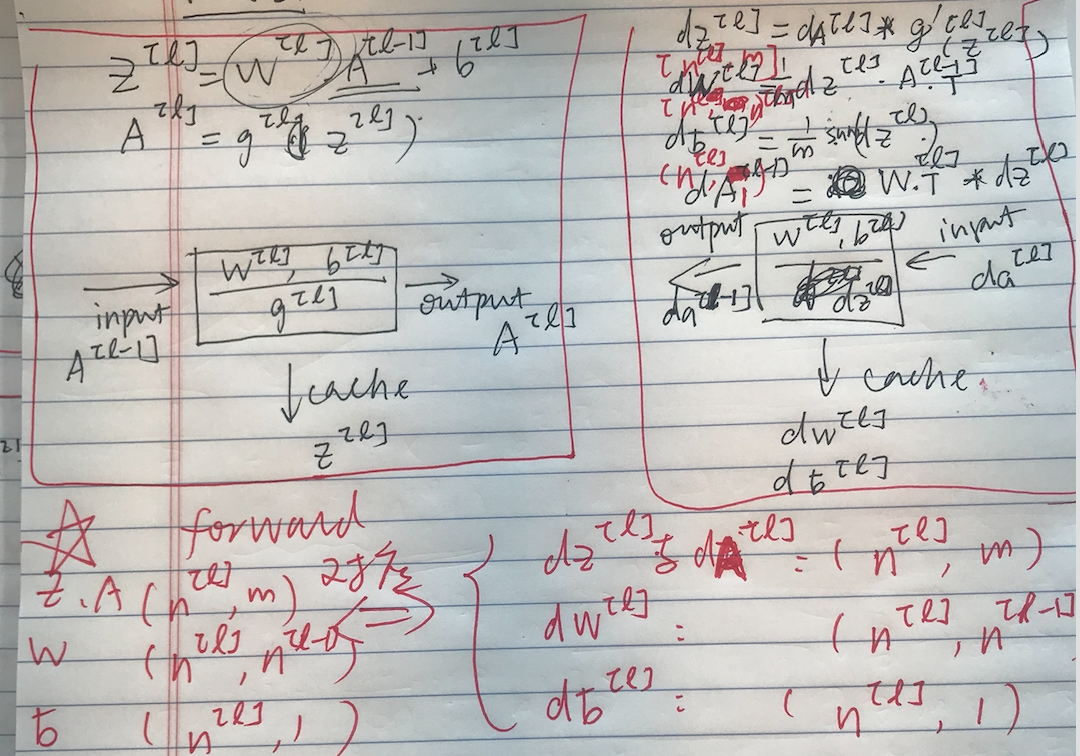 Z[l] = W[l] A[l-1] + b[l]
A[l] = g[l]( Z[l] )
input
A[l-1]
W[l], b[l]
g[l]
output
A[l]
cache
Z[l]
dz[l] = dA[l] * g'[l](z[l])
(n[l], m)
dW[l] = 1/m dz[l] · A[l-1].T
db[l] = 1/m sum(dz[l])
(n[l], 1)
dA[l-1] = W.T[l] * dz[l]
output
da[l-1]
W[l], b[l]
dz[l]
input
da[l]
cache
dw[l]
db[l]
forward
Z.A (n[l], m)
W (n[l], n[l-1])
b (n[l], 1)
⇒
dz[l] 与 dA[l] : (n[l], m)
dw[l] : (n[l], n[l-1]
db[l] : (n[l], 1)